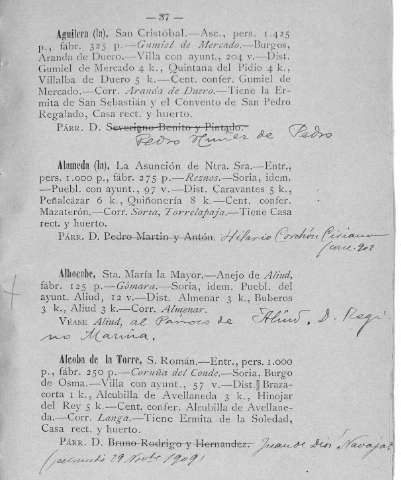 — 37 —
Aguilera (la). San Cristóbal.—Asc., pers. 1.425
p., fábr. 325 p.—Gumiel de Mercado.—Burgos,
Aranda de Duero.—Villa con ayunt., 204 v.—Dist.
Gumiel de Mercado 4 k., Quintana del Pidio 4 k.,
Villalba de Duero 5 k.—Cent. confer. Gumiel de
Mercado.—Corr. Aranda de Duero.—Tiene la Er-
mita de San Sebastián y el Convento de San Pedro
Regalado, Casa rect. y huerto.
PÁRR. D. Severigno Benito y Pintado.
Pedro de Pedro
Alameda (la). La Asunción de Ntra. Sra.—Entr.,
pers. 1.000 p., fábr. 275 p.—Reznos.—Soria, idem.
—Puebl. con ayunt., 97 v.—Dist. Caravantes 5 k.,
Peñalcázar 6 k., Quiñonería 8 k.—Cent. confer.
Mazaterón.—Corr. Soria, Torrelapaja.—Tiene Casa
rect. y huerto.
PÁRR. D. Pedro Martin y Antón. Hilario
Albocabe, Sta. María la Mayor.—Anejo de Aliud,
fábr. 125 p.—Gómara.—Soria, idem. Puebl. del
ayunt. Aliud, 12 v.—Dist. Almenar 3 k., Buberos
3 k., Aliud 3 k.—Corr. Almenar.
VÉASE Aliud, al Párroco de Aliud. D. Regi
no Marina.
Alcoba de la Torre, S. Román.—Entr., pers. 1.000
p., fábr. 250 p.—Coruña del Conde.—Soria, Burgo
de Osma.—Villa con ayunt., 57 v.—Dist. Braza-
corta 1 k., Alcubilla de Avellaneda 3 k., Hinojar
del Rey 5 k.—Cent. confer. Alcubilla de Avellane-
da.—Corr. Langa.—Tiene Ermita de la Soledad,
Casa rect. y huerto.
PÁRR. D. Bruno Rodrigo y Hernandez. Juan de Dios
29 1909